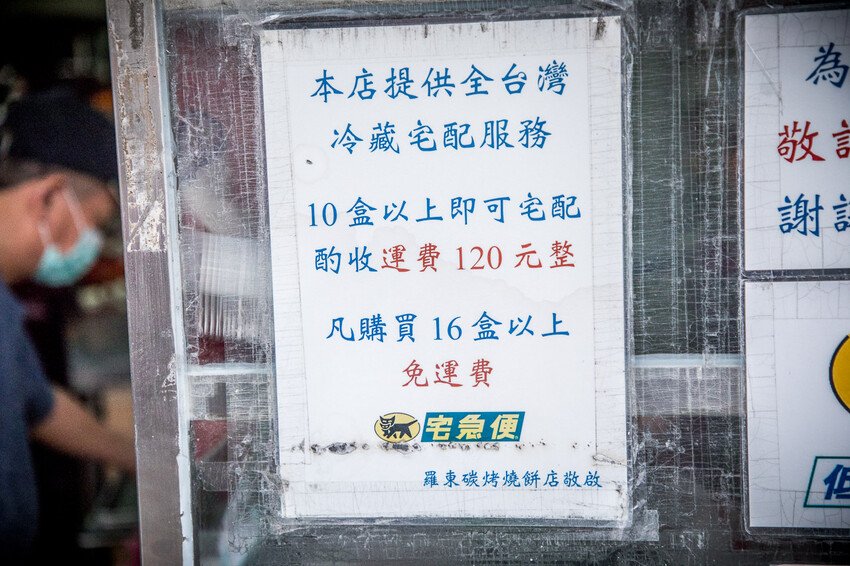 本店提供全台灣
冷藏宅配服務
10盒以上即可宅配
酌收運費120元整
凡購買16盒以上
免運費
宅急便
羅東碳烤燒餅店敬啟
為
敬
謝